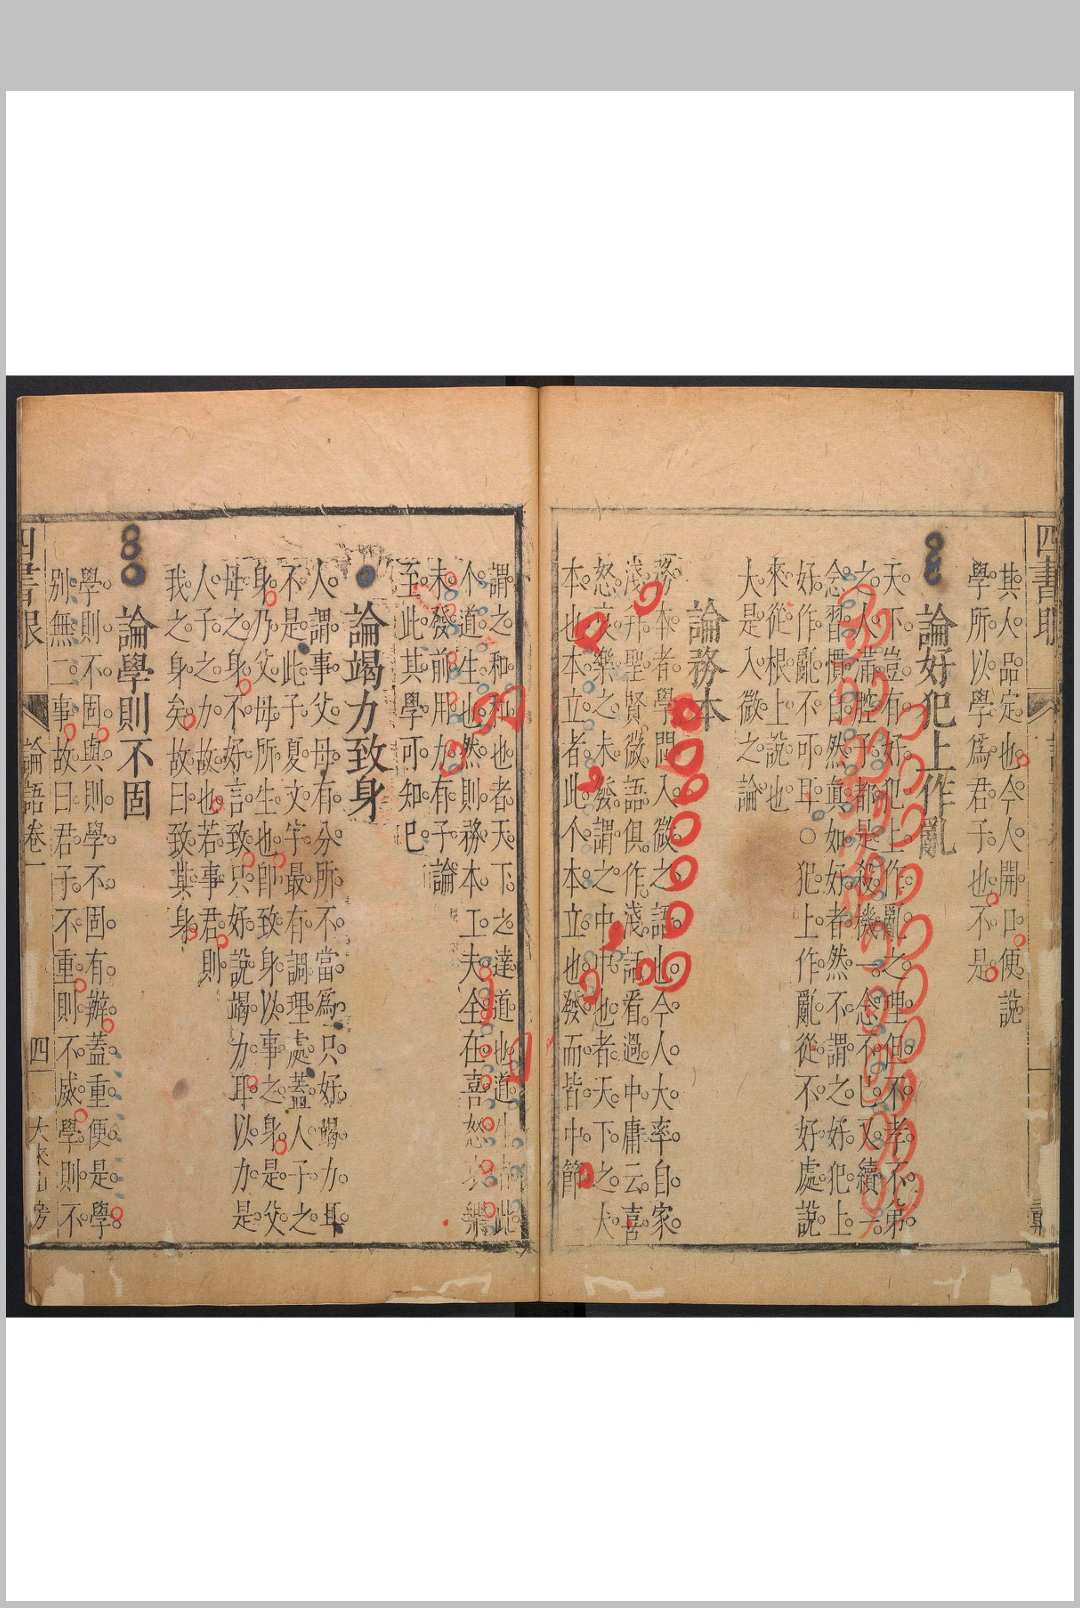 四書眼
其人品定也今人開口便說
學所以學爲君子也不是
論好犯上作亂
天下豈有好犯上作亂之理但不孝不弟
之人滿腔子都是殺機一念不已又續一
念習慣自然真如好者然不謂之好犯上
好作亂不可耳〇犯上作亂從不好處說
來從根上說也
大是入微之論
論務本
務本者學問入微之語也今人大率自家
淺并聖賢微語俱作淺話看過中庸云喜
怒哀樂之未發謂之中中也者天下之大
本也本立者此个本立也發而皆中節
謂之和和也者天下之達道也道生此
个道生也然則務本工夫全在喜怒哀樂
未發前用力有子論
至此其學可知已
論竭力致身
人謂事父母有分所不當爲只好竭力耳
不是此子夏文字最有調理處蓋人子之
身乃父母所生也卽致身以事之身是父
母之身不好言致只好說竭力耳以力是
人子之力故也若事君則
我之身矣故曰致其身
論學則不固
學則不固與則學不固有辦蓋重便是學
別無二事故曰君子不重則不威學則不
四書眼
論語卷一
四
大來山房